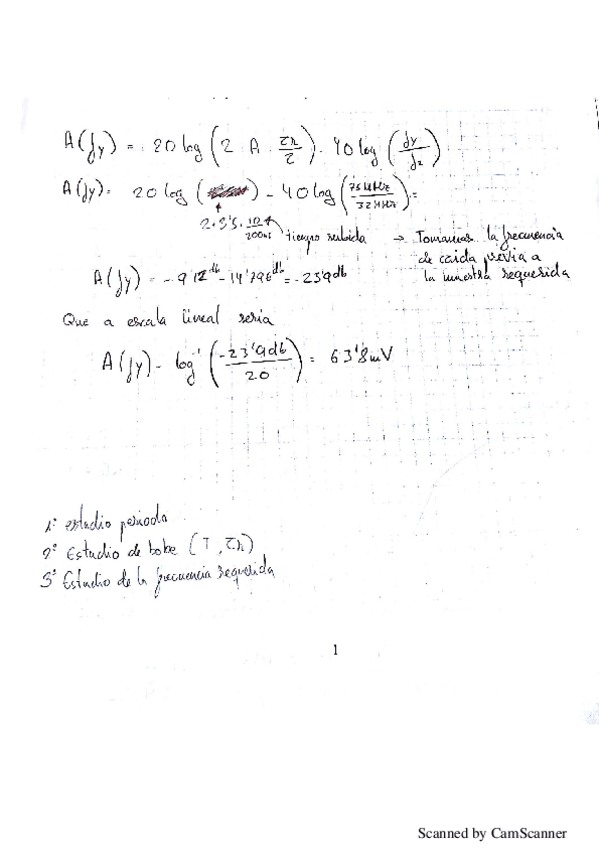 A(fy) = 20 log (2 · A · τr/τ) - 40 log (fy/fz)
A(fy) = 20 log ( ) - 40 log (75MHz/32MHz) =
2·3'5· /200ns tiempo subida → Tomamos la frecuencia
de caida previa a
la muestra requerida
A(fy) = -9'12 db - 14'796 db = -23'9 db
Que a escala lineal seria
A(fy) - log⁻¹ (-23'9db/20) = 63'8mV
1º estudio periodo
2º Estudio de (T, τr)
3º Estudio de la frecuencia requerida
1
Scanned by CamScanner